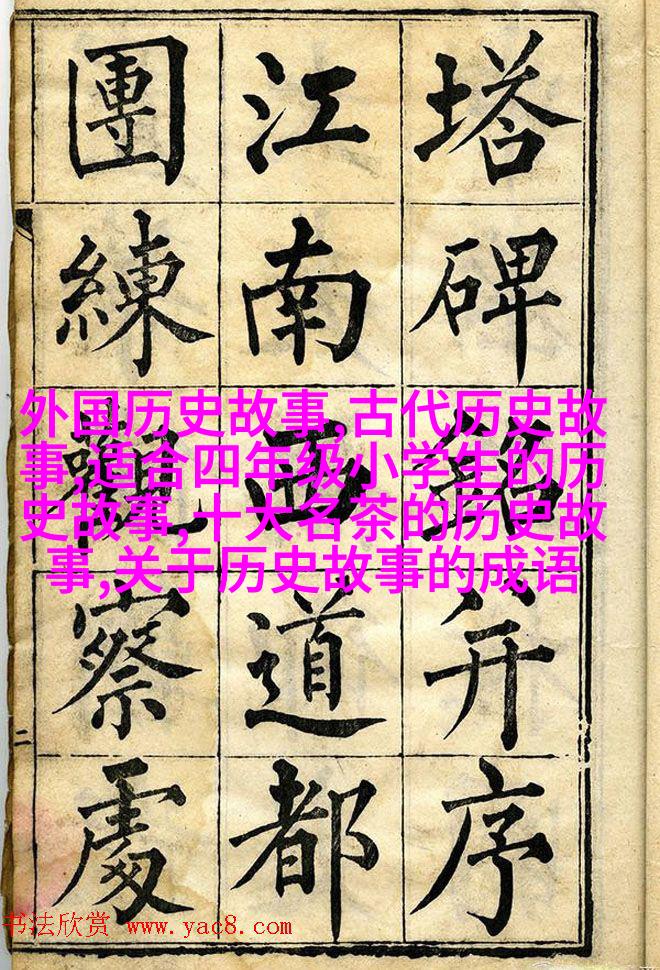 塔碑銘并序
江南西道都
團練觀察處
二
外国历史故事,古代历史故
事,适合四年级小学生的历
史故事,十大名茶的历史故
事,关于历史故事的成语
书法欣赏 www.yac8.com